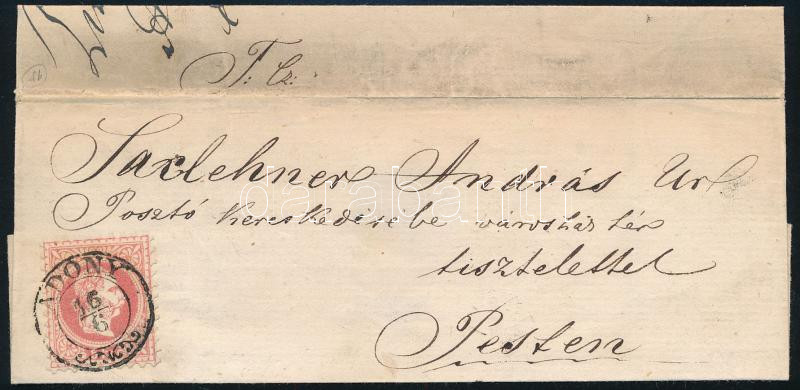 T: Cz:
Saxlehner András Ur
Posztó kereskedésebe városház tér
tisztelettel
Pesten
ADONY
16
6